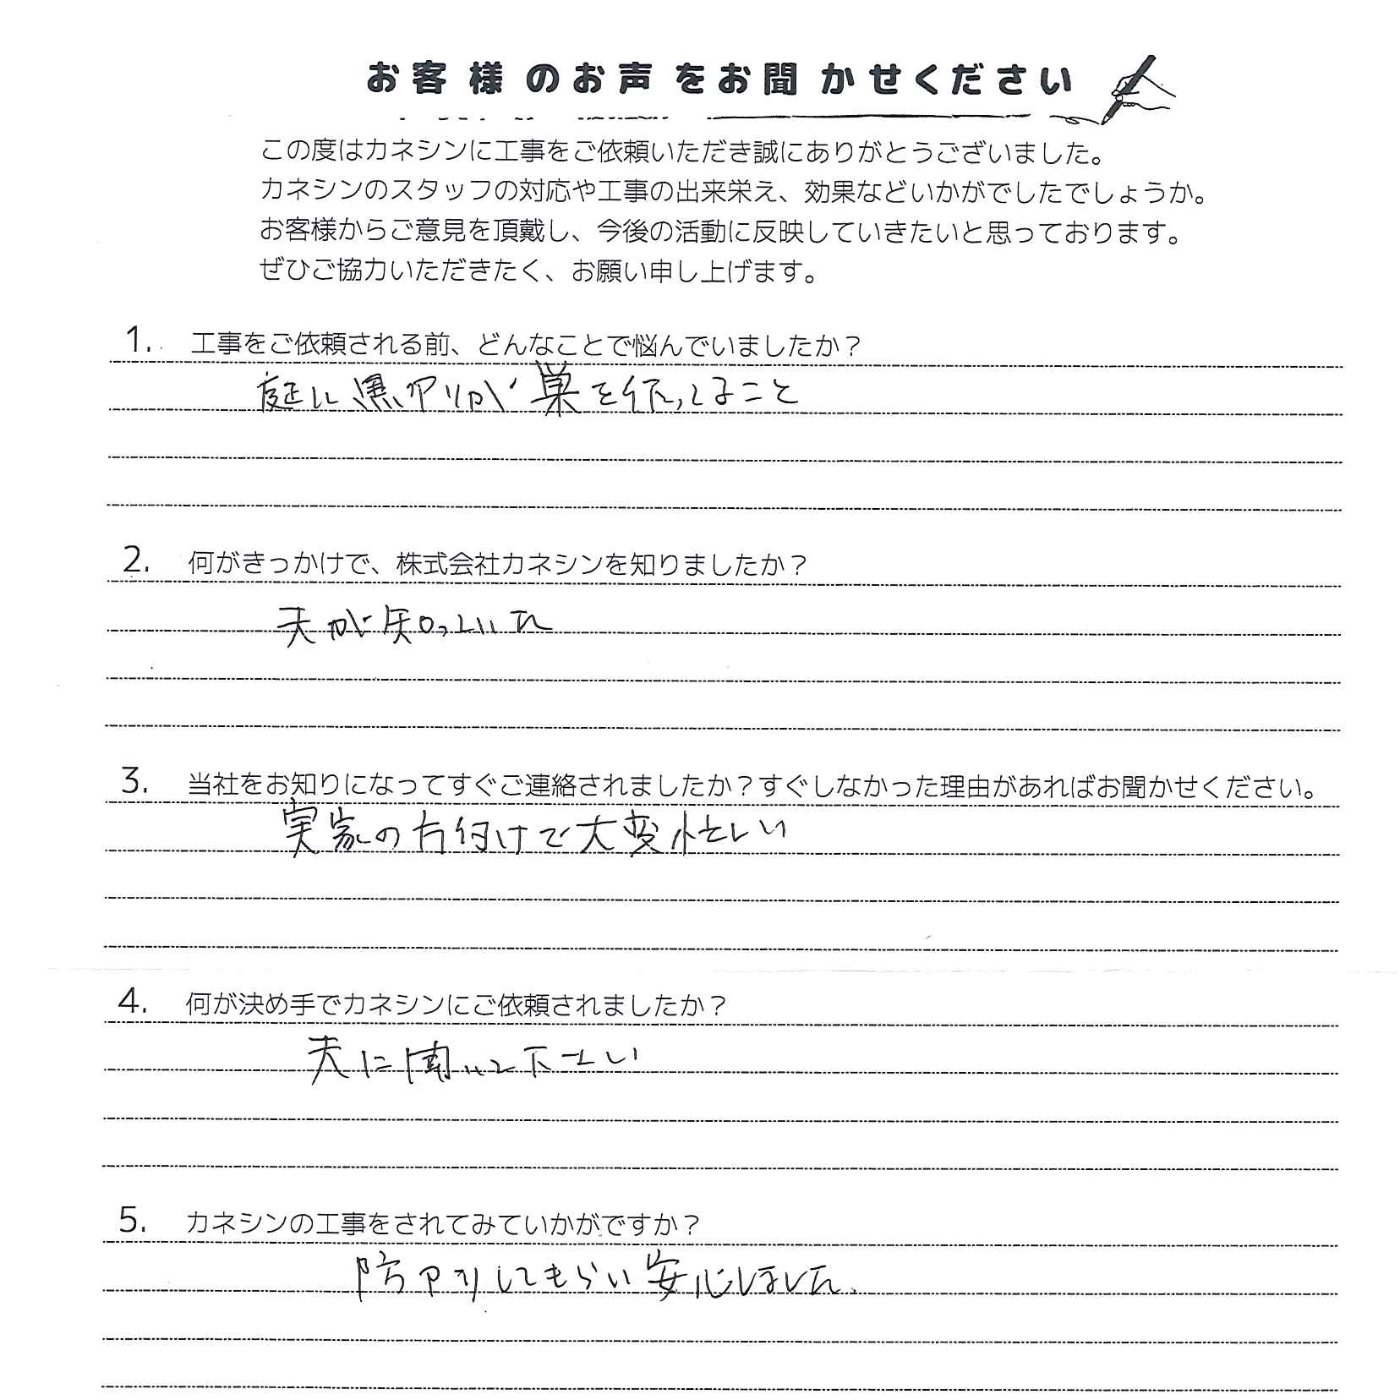 お客様のお声をお聞かせください
この度はカネシンに工事をご依頼いただき誠にありがとうございました。
カネシンのスタッフの対応や工事の出来栄え、効果などいかがでしたでしょうか。
お客様からご意見を頂戴し、今後の活動に反映していきたいと思っております。
ぜひご協力いただきたく、お願い申し上げます。
1. 工事をご依頼される前、どんなことで悩んでいましたか？
庭に黒アリが巣を作ってること
2. 何がきっかけで、株式会社カネシンを知りましたか？
夫が知っていた
3. 当社をお知りになってすぐご連絡されましたか？すぐしなかった理由があればお聞かせください。
実家の片付けで大変忙しい
4. 何が決め手でカネシンにご依頼されましたか？
夫に聞いて下さい
5. カネシンの工事をされてみていかがですか？
防アリしてもらい安心しました。